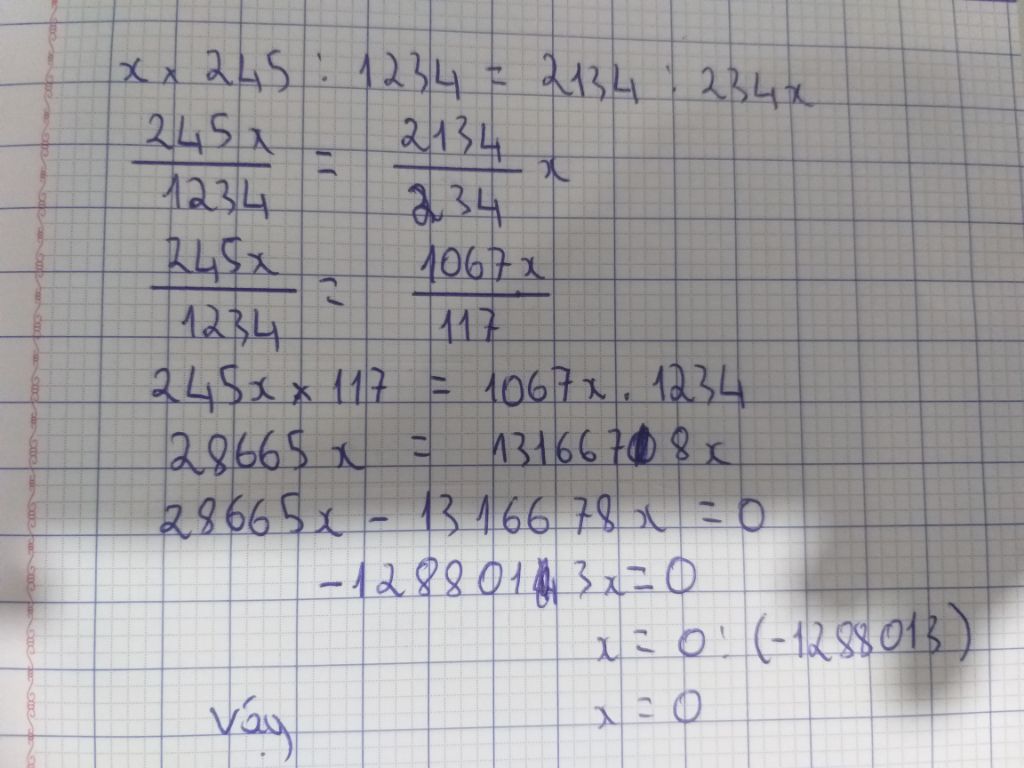 x × 245 : 1234 = 2134 : 234x
245x/1234 = 2134/234 x
245x/1234 = 1067x/117
245x × 117 = 1067x . 1234
28665x = 1316678x
28665x - 1316678x = 0
-1288013x = 0
x = 0 : (-1288013)
Vậy x = 0